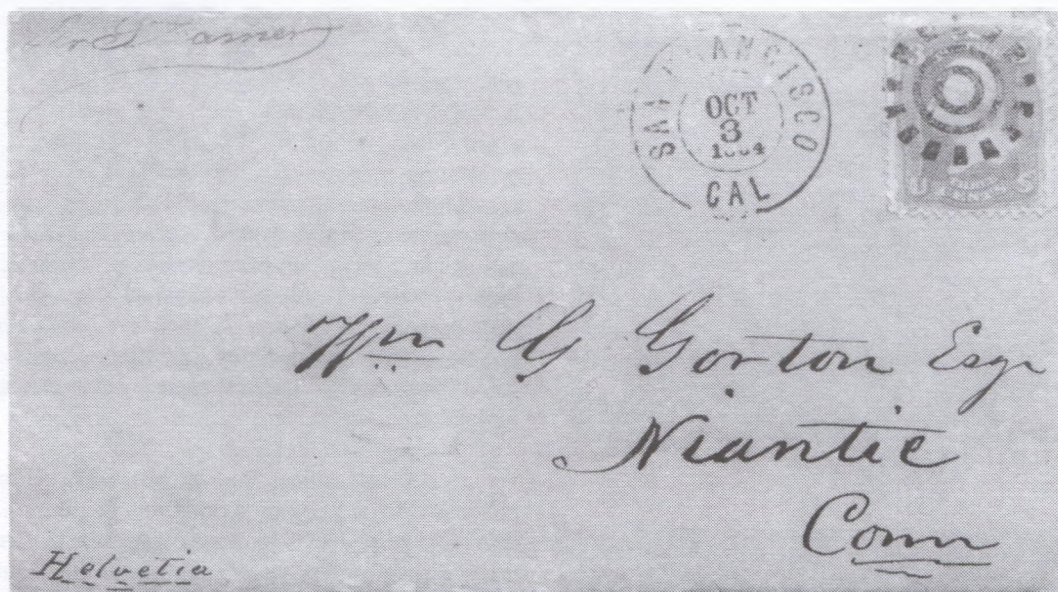 Per Steamer
SAN FRANCISCO
OCT
3
1864
CAL
U S
Wm G Gorton Esqr
Niantic
Conn
Helvetia